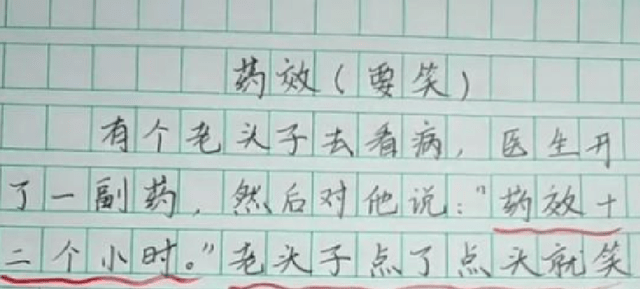 药效(要笑)
有个老头子去看病,医生开
了一副药,然后对他说:“药效十
二个小时。”老头子点了点头就笑